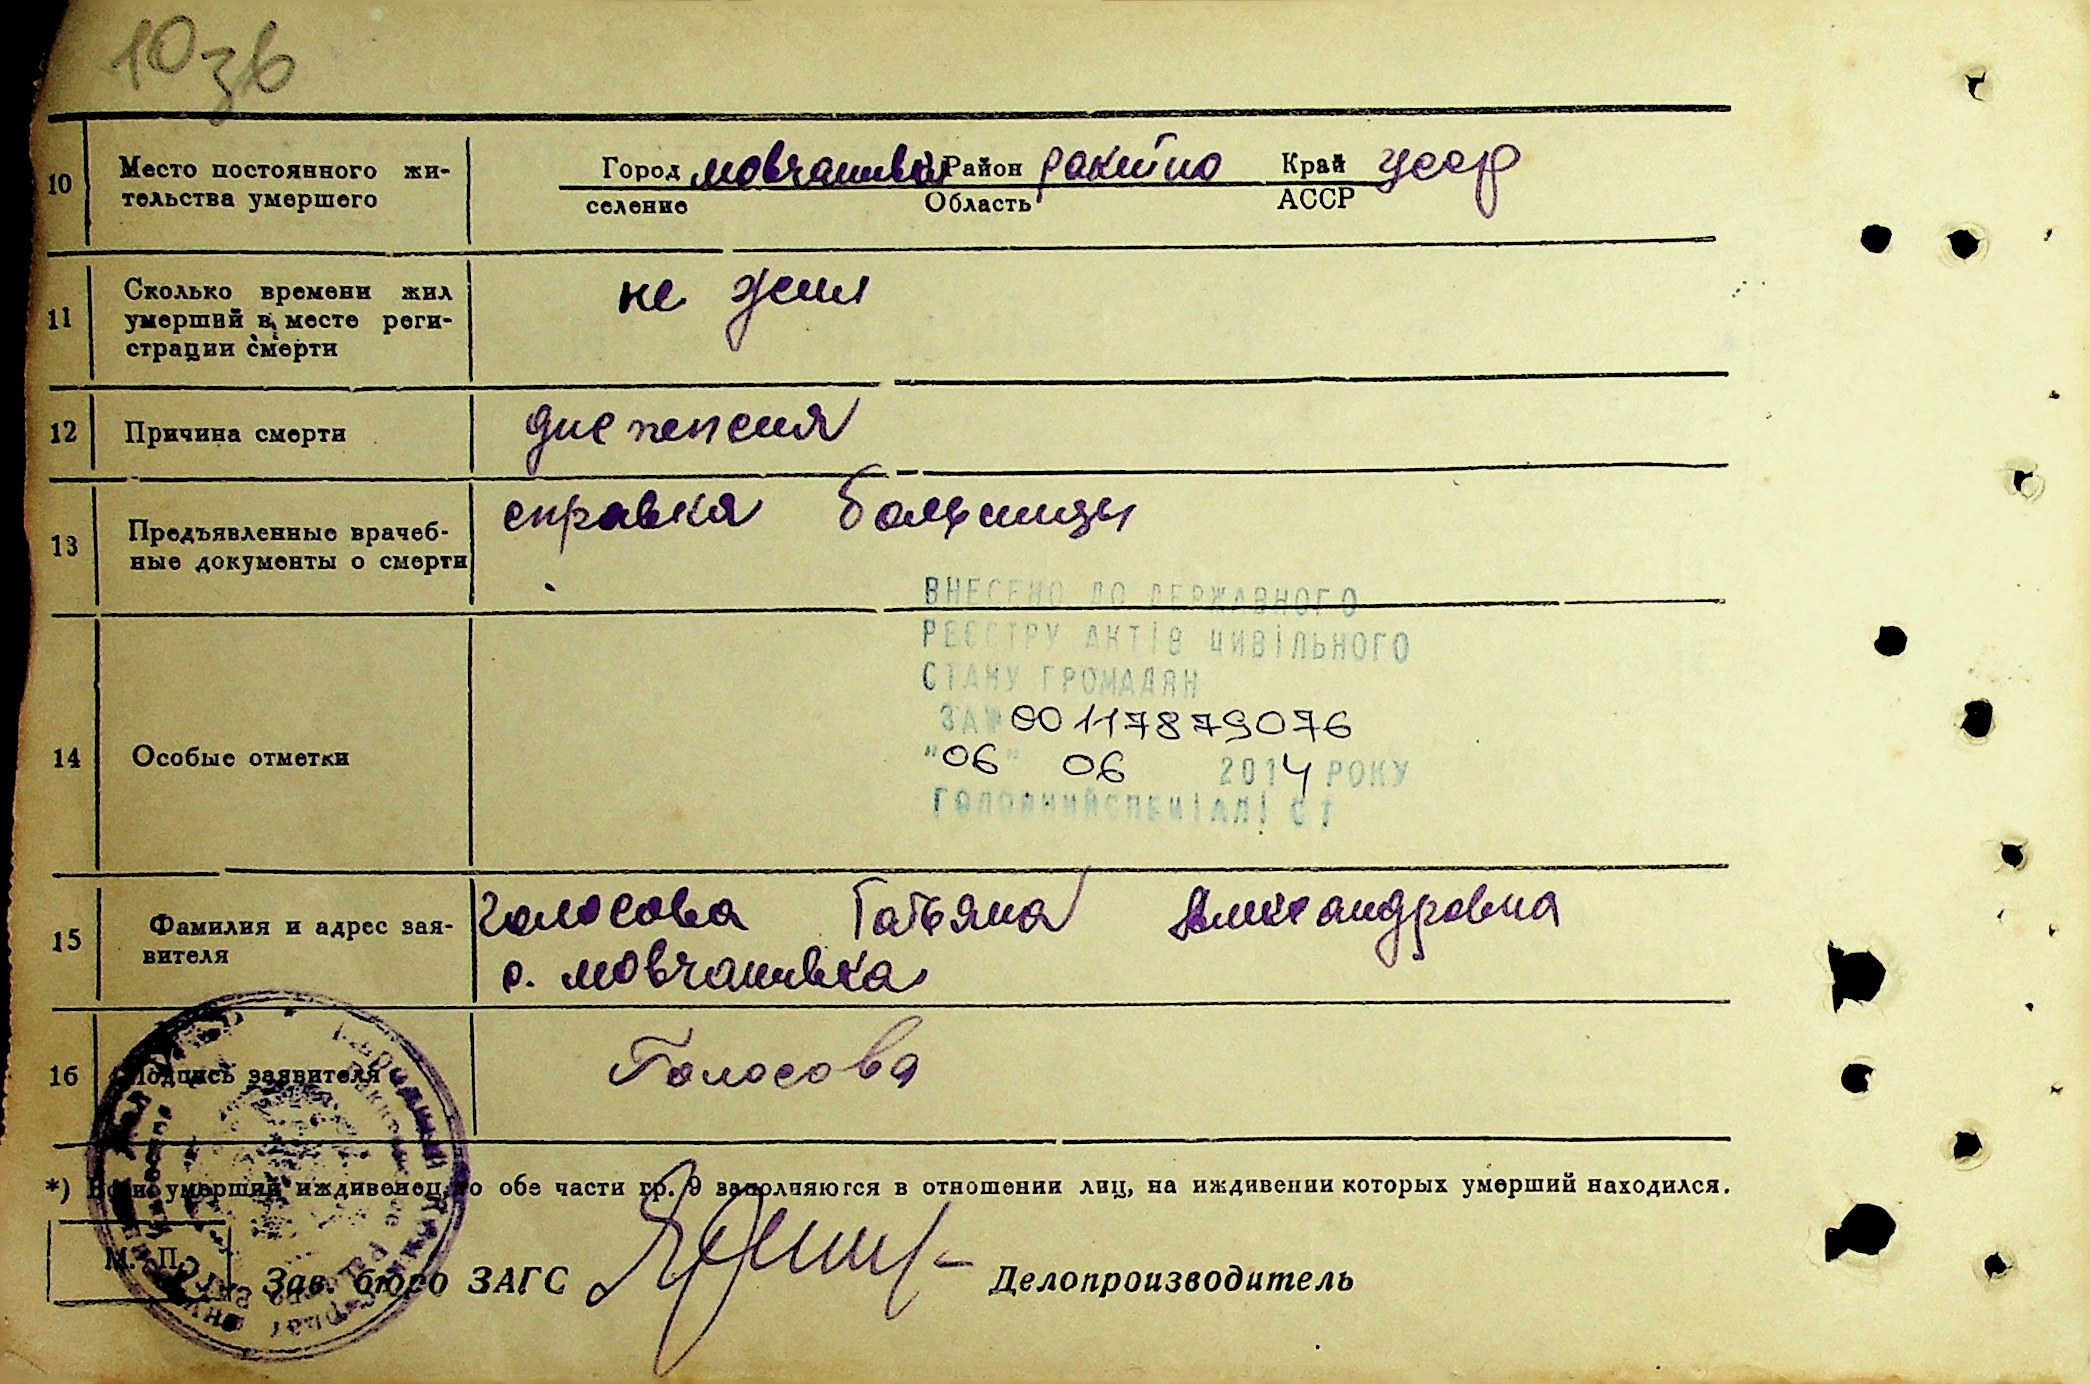 10 зв
10 Место постоянного жи- Город мовчанивка Район ракитно Край усср
тельства умершего селение Область АССР
11 Сколько времени жил не жил
умерший в месте реги-
страции смерти
12 Причина смерти диспепсия
13 Предъявленные врачеб- справка больницы
ные документы о смерти
ВНЕСЕНО ДО ДЕРЖАВНОГО
РЕЄСТРУ АКТІВ ЦИВІЛЬНОГО
СТАНУ ГРОМАДЯН
ЗА № 00117879076
14 Особые отметки "06" 06 2014 РОКУ
ГОЛОВНИЙ СПЕЦІАЛІСТ
15 Фамилия и адрес зая- Голосова Татьяна Александровна
вителя с. мовчанивка
16 Подпись заявителя Голосова
*) Если умерший иждивенец, то обе части гр. 9 заполняются в отношении лиц, на иждивении которых умерший находился.
М. П.
Зав. бюро ЗАГС Делопроизводитель